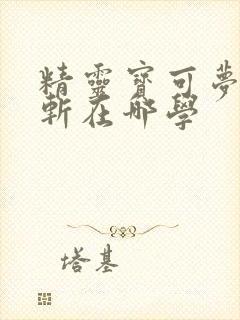 精靈寶可夢
斬在哪學
塔基